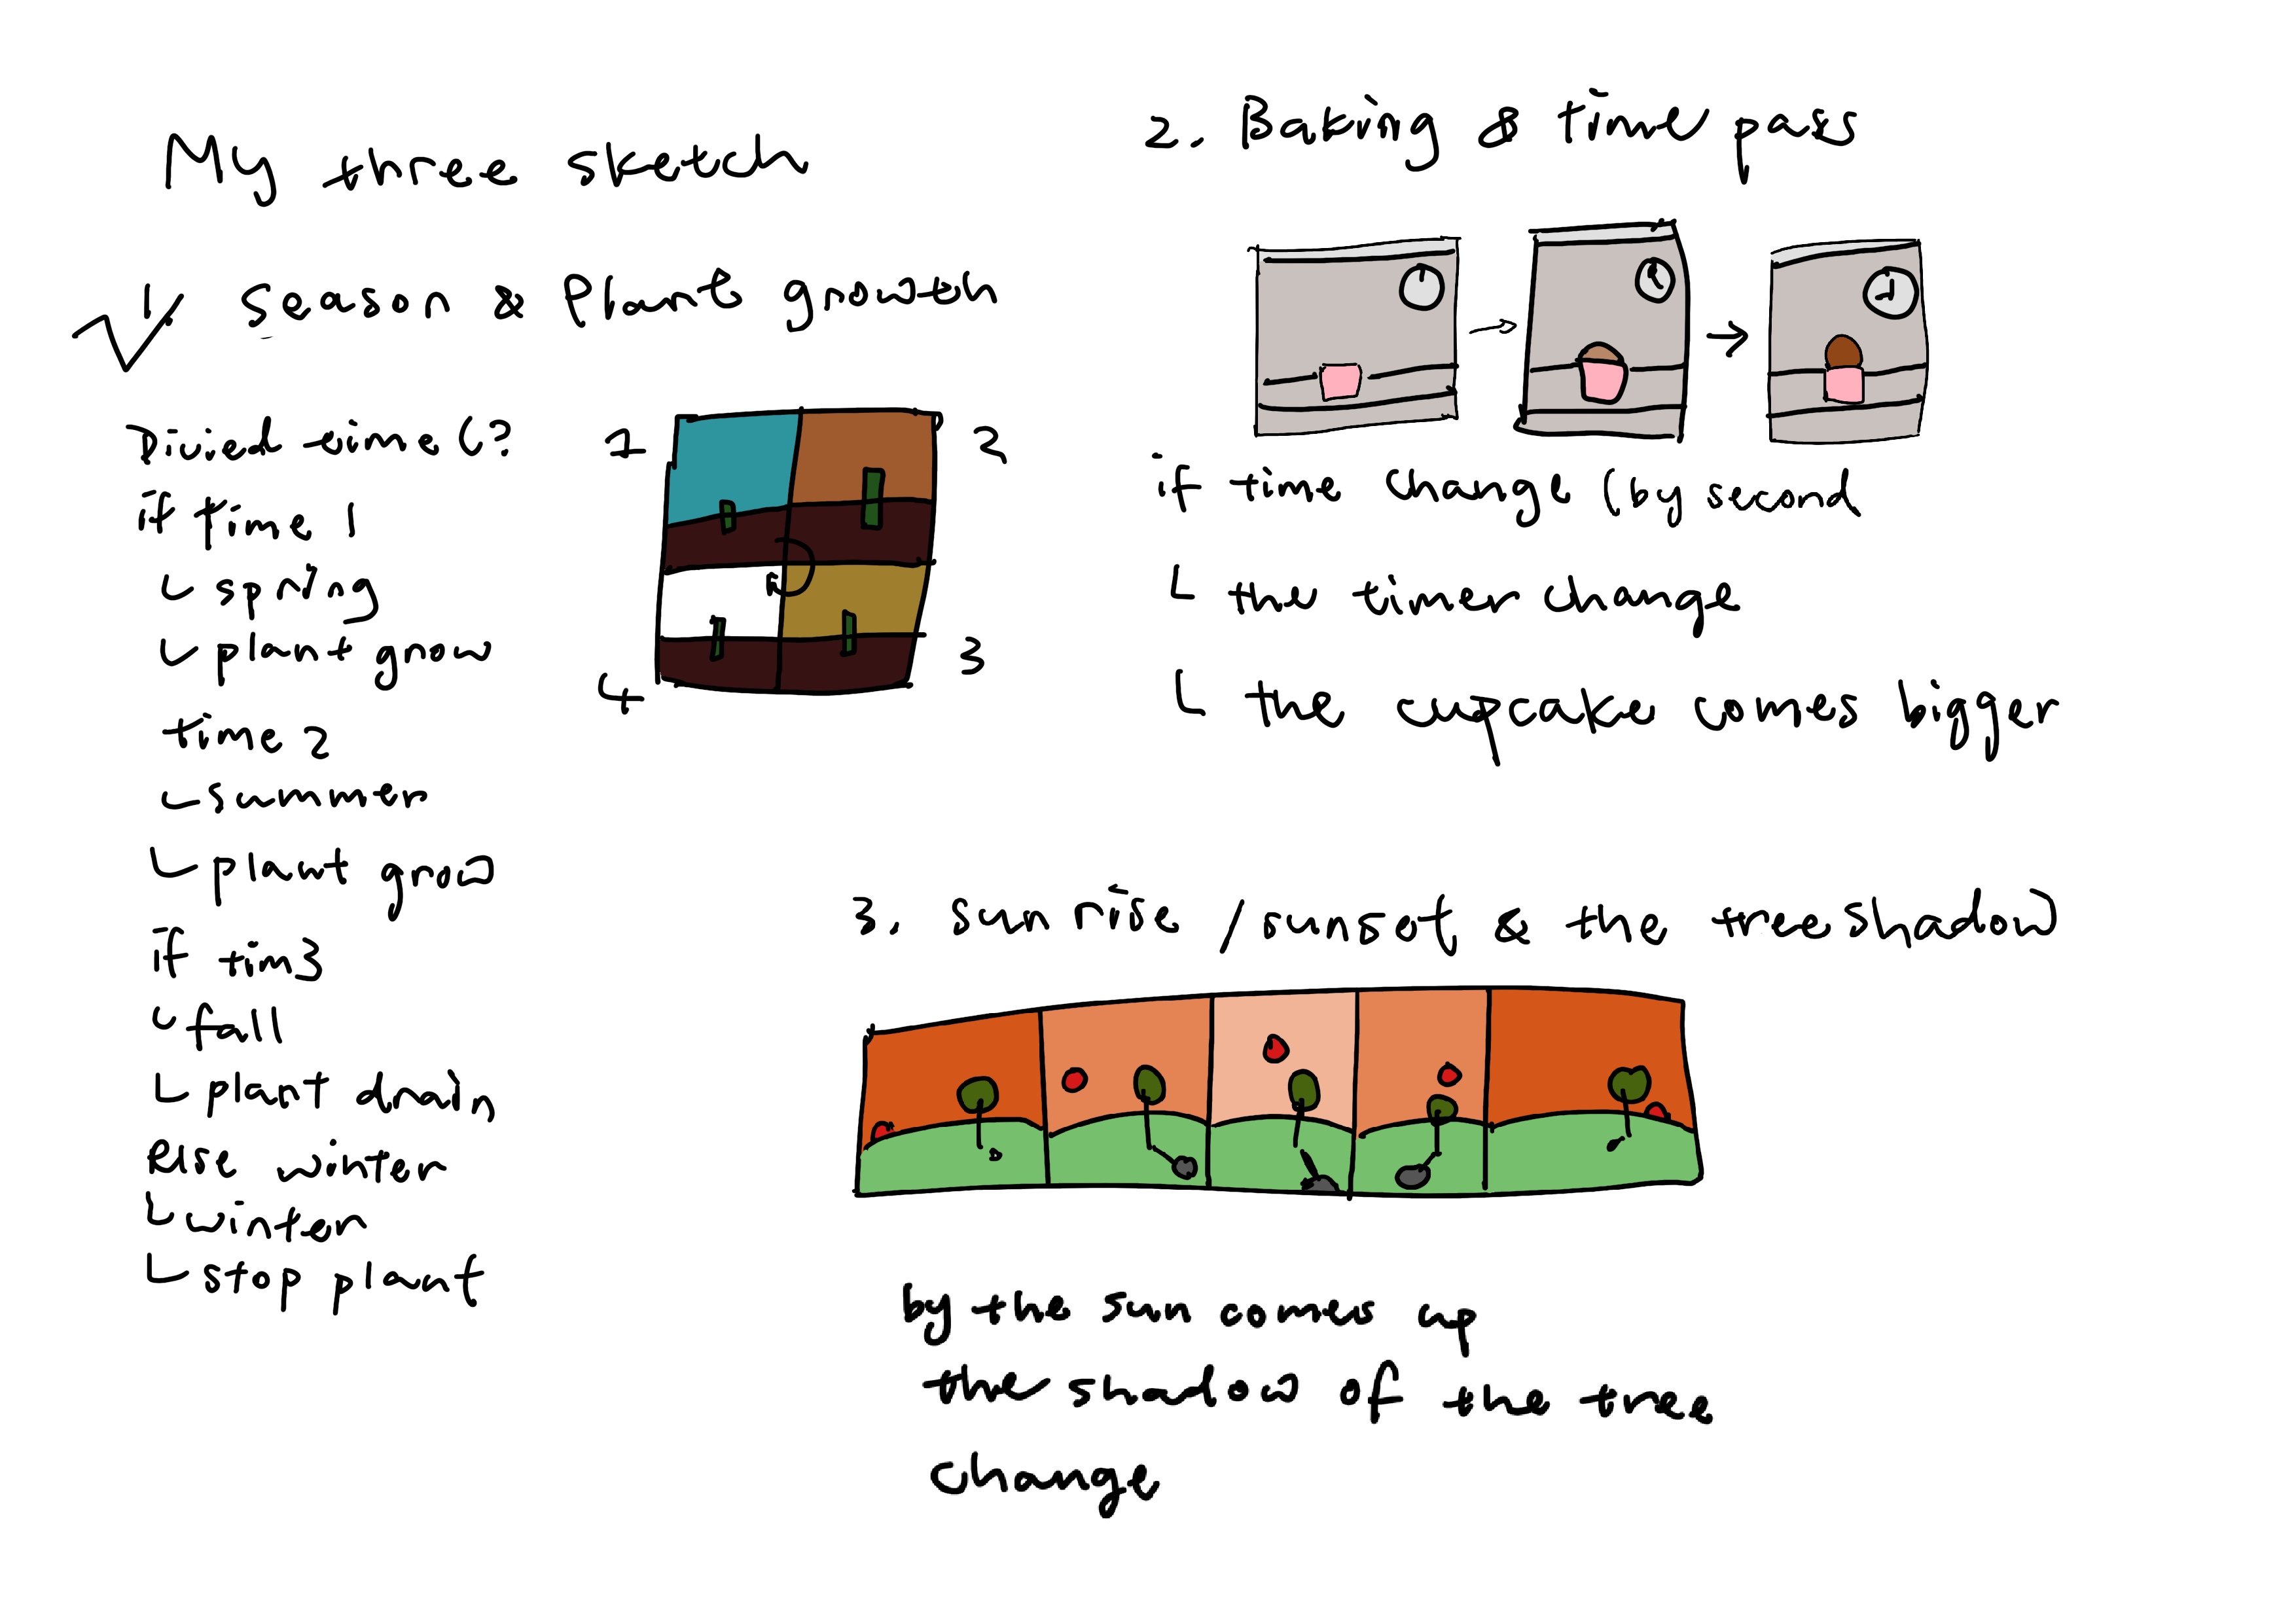 My three sketch
1. Season & Plant growth
Divied time (?
if time 1
spring
plant grow
time 2
summer
plant grow
if tim3
fall
plant drain
else winter
winter
stop plant
1
2
3
4
2. Baking & time pass
if time change (by second
the timer change
the cupcake comes bigger
3. sun rise / sunset & the tree shadow
by the sun comes up
the shadow of the tree
change